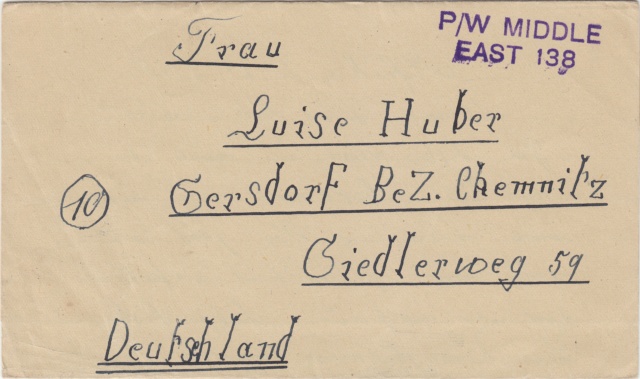 P/W MIDDLE
EAST 138
Frau
Luise Huber
10
Gersdorf Bez. Chemnitz
Siedlerweg 59
Deutschland